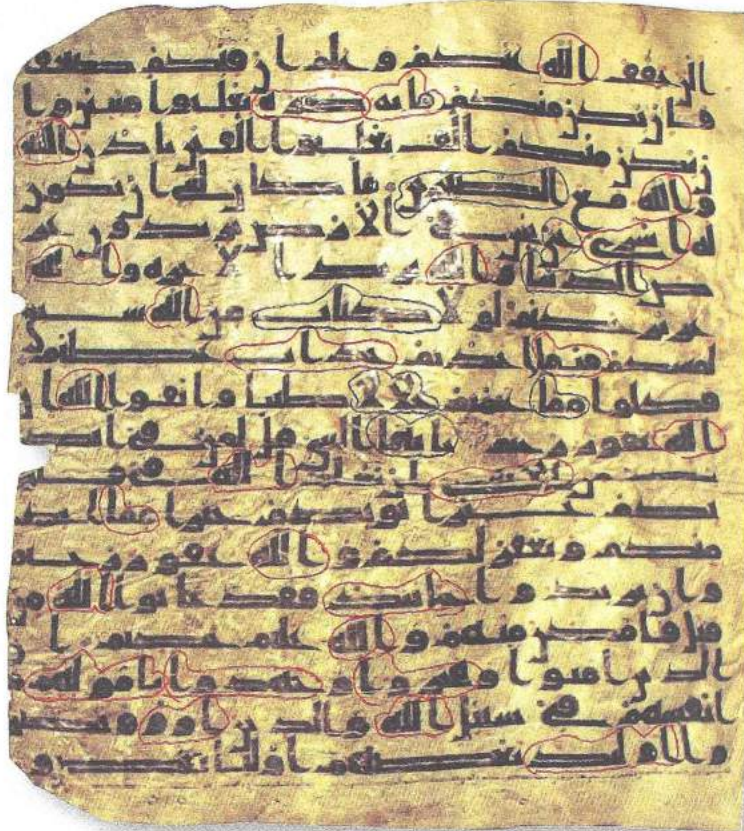 الن خفف الله عنكم وعلم ان فيكم ضعفا
فان يكن منكم مايه صبره يغلبوا ميتين وا
ن يكن منكم الف يغلبوا الفين باذن الله
والله مع الصبرين ما كان لنبى ان يكون
له اسرى حتى يثخن فى الارض تريدون عر
ض الدنيا والله يريد الاخره والله
عزيز حكيم لولا كتاب من الله سبق
لمسكم فيما اخذتم عذاب عظيم
فكلوا مما غنمتم حللا طيبا واتقوا الله ان
الله غفور رحيم يايها النبى قل لمن فى ايد
يكم من الاسرى ان يعلم الله فى قلو
بكم خيرا يوتكم خيرا مما اخذ
منكم ويغفر لكم والله غفور رحيم
وان يريدوا خيانتك فقد خانوا الله من
قبل فامكن منهم والله عليم حكيم ان
الذين امنوا وهجروا وجهدوا باموالهم و
انفسهم فى سبيل الله والذين اووا ونصر
وا اولئك بعضهم اوليا بعض و